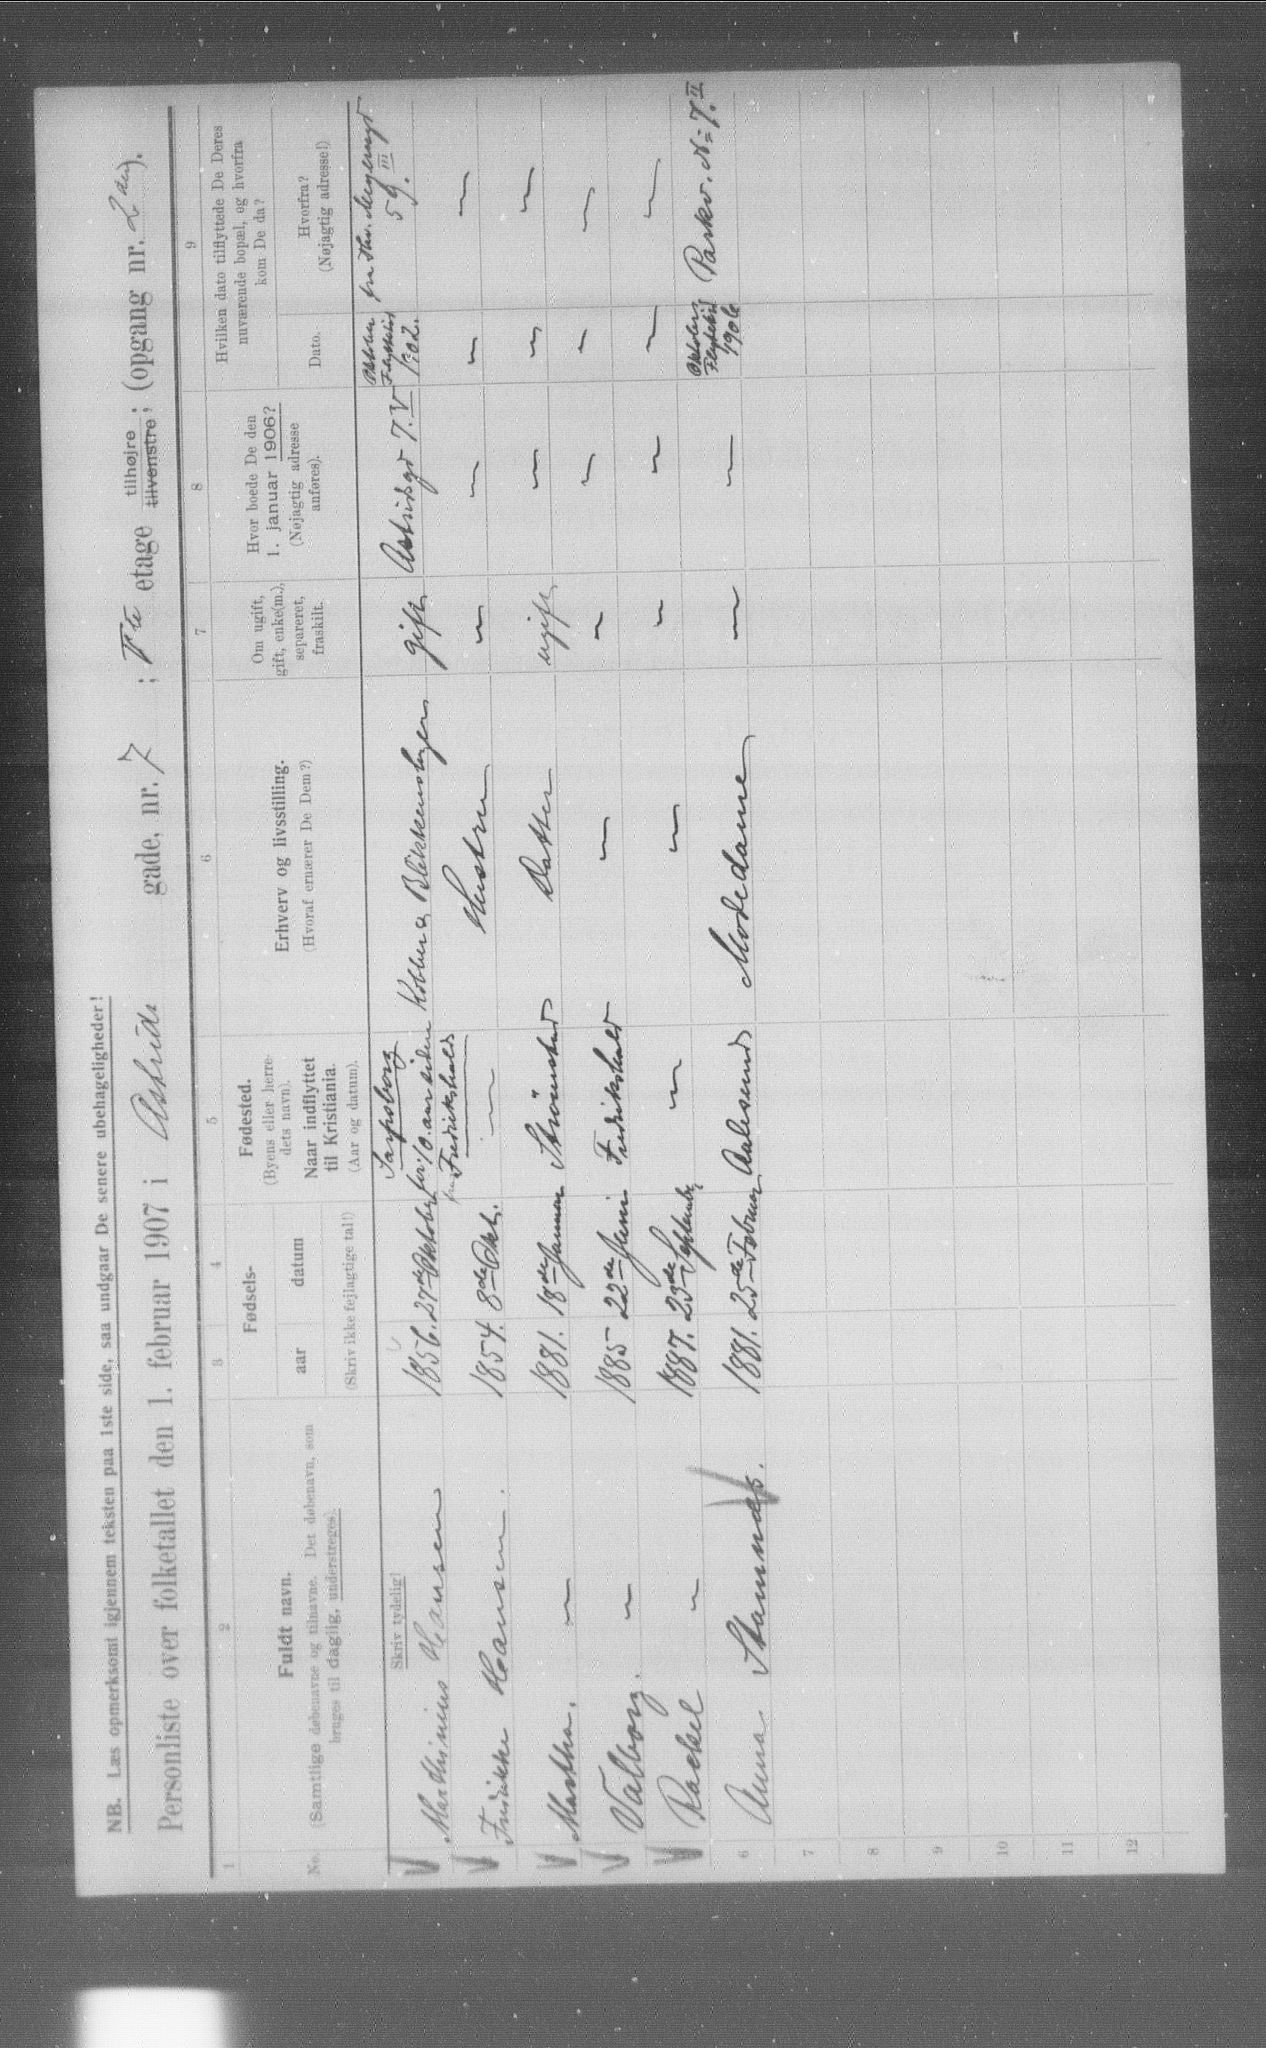 NB. Læs opmerksomt igjennem teksten paa 1ste side, saa undgaar De senere ubehageligheder!
Personliste over folketallet den 1. februar 1907 i Astrids gade, nr. 7 ; Vte etage tilhøjre ; tilvenstre; (opgang nr. 2den).
1 2 3 4 5 6 7 8 9
No. Fuldt navn.
(Samtlige døbenavne og tilnavne. Det døbenavn, som
bruges til daglig, understreges).
Fødsels-
aar datum
(Skriv ikke fejlagtige tal!)
Fødested.
(Byens eller herre-
dets navn).
Naar indflyttet
til Kristiania.
(Aar og datum).
Erhverv og livsstilling.
(Hvoraf ernærer De Dem?)
Om ugift,
gift, enke(m.),
separeret,
fraskilt.
Hvor boede De den
1. januar 1906?
(Nøjagtig adresse
anføres).
Hvilken dato tilflyttede De Deres
nuværende bopæl, og hvorfra
kom De da?
Dato.
Hvorfra?
(Nøjagtig adresse!)
Skriv tydelig!
Marthinius Hansen 1856. 27de Oktober Sarpsborg for 10 aar siden fra Fredrikshald Kobber og Blikkenslager gift Astridsgd 7. V Oktober Flyttetid 1902. fra Thv. Meyersgt. 59. III
Fredrikke Hansen. 1854. 8de Okt. — Hustru — — — —
Martha. — 1881. 18de Januar Strömstad Datter ugift — — —
Valborg. — 1885 22de Juni Fredrikshald — — — — —
Rackel — 1887. 23de September — — — — — —
6 Anna Stamnæs. 1881. 25de Februar Aalesund Modedame — — Oktober Flyttetid 1906 Parkv. No 7. II
7
8
9
10
11
12